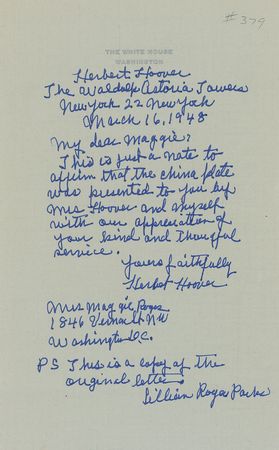 #379
THE WHITE HOUSE
WASHINGTON
Herbert Hoover
The Waldolf Astoria Towers
New York 22 New York
March 16, 1948
My dear Maggie:
This is just a note to
affirm that the china plate
was presented to you by
Mrs Hoover and myself
with our appreciation of
your kind and thoughful
service.
Yours faithfully
Herbert Hoover
Mrs Maggie Rogers
1846 Vernon St NW
Washington D.C.
PS This is a copy of the
original letter.
Lillian Rogers Parks